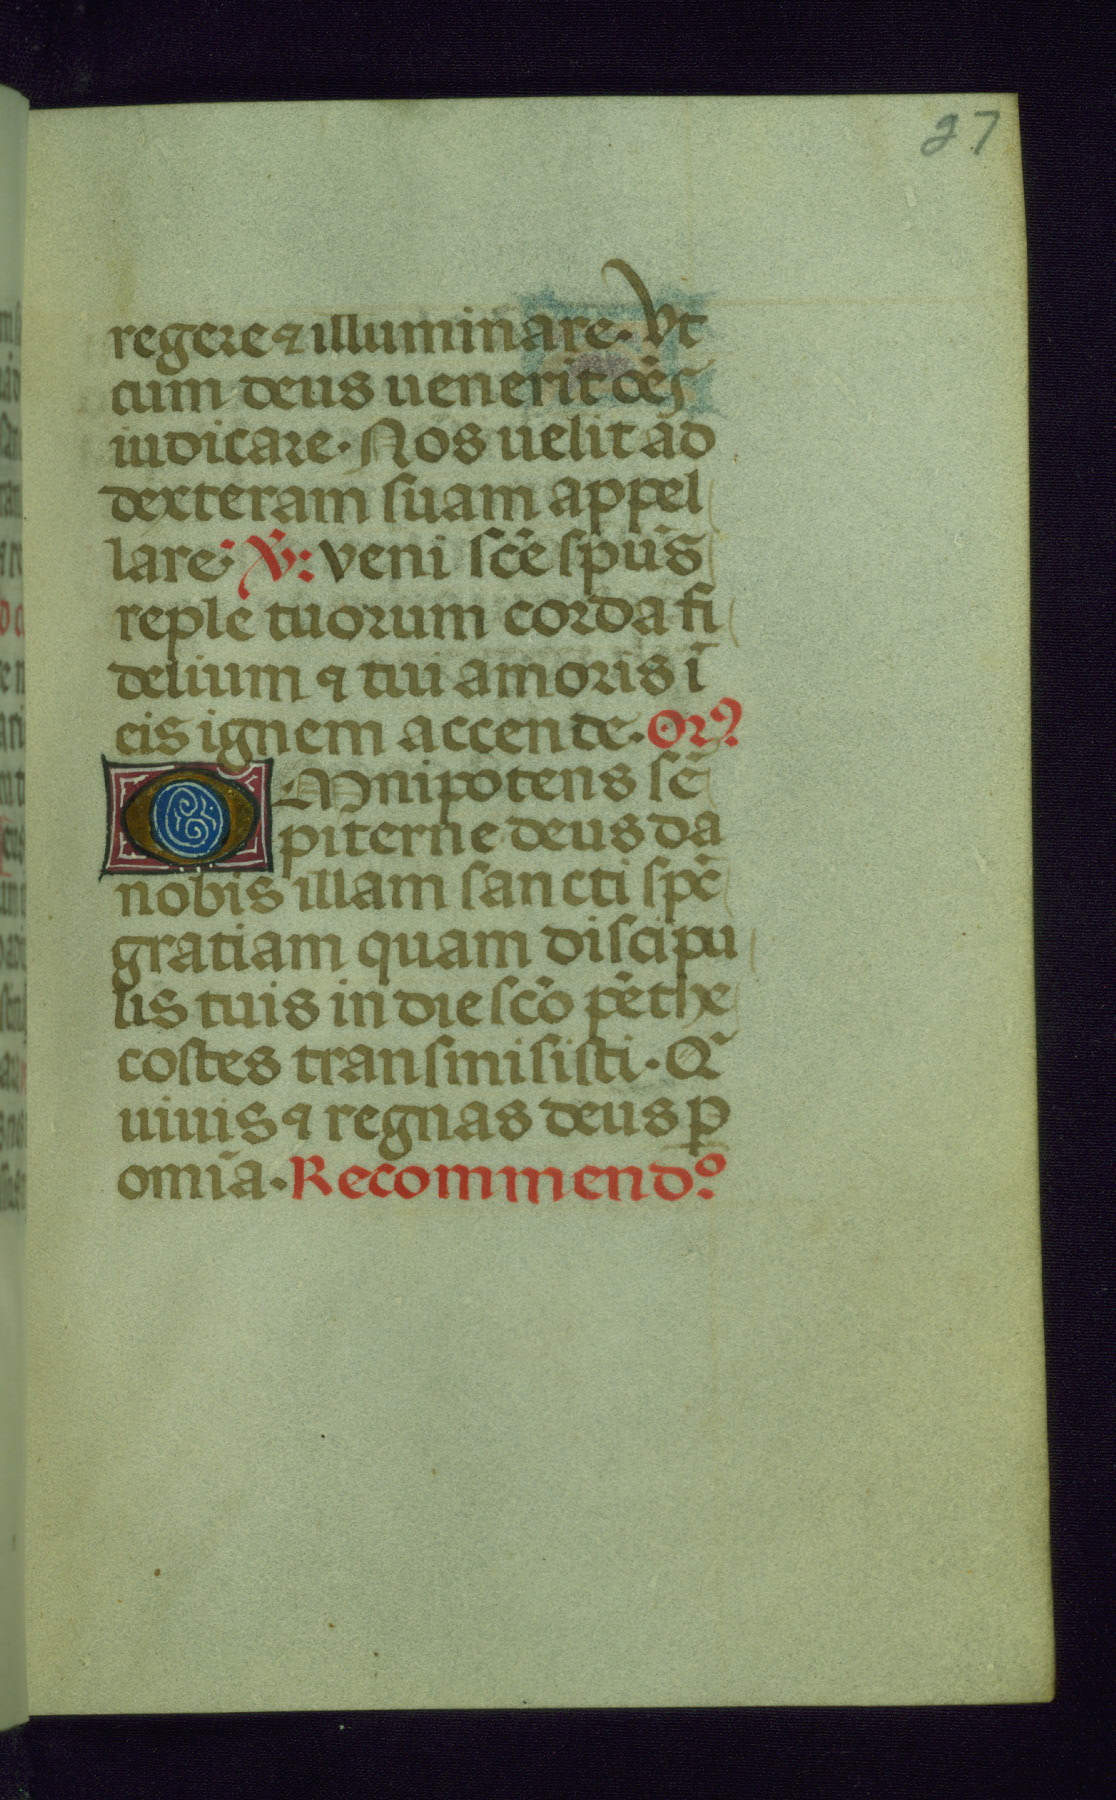 27
regere & illuminare. Vt
cum deus uenerit oēs
iudicare. Nos uelit ad
dexteram ſuam appel
lare. V: veni ſcē ſpūs
reple tuorum corda fi
delium ⁊ tui amoris ī
eis ignem accende. Orº.
OMnipotens ſē
piterne deus da
nobis illam ſancti ſpē
gratiam quam diſcipu
lis tuis in die ſcō pēthe
coſtes tranſmiſiſti. Q
uiuis ⁊ regnas deus ꝑ
omīa. Recommendº.